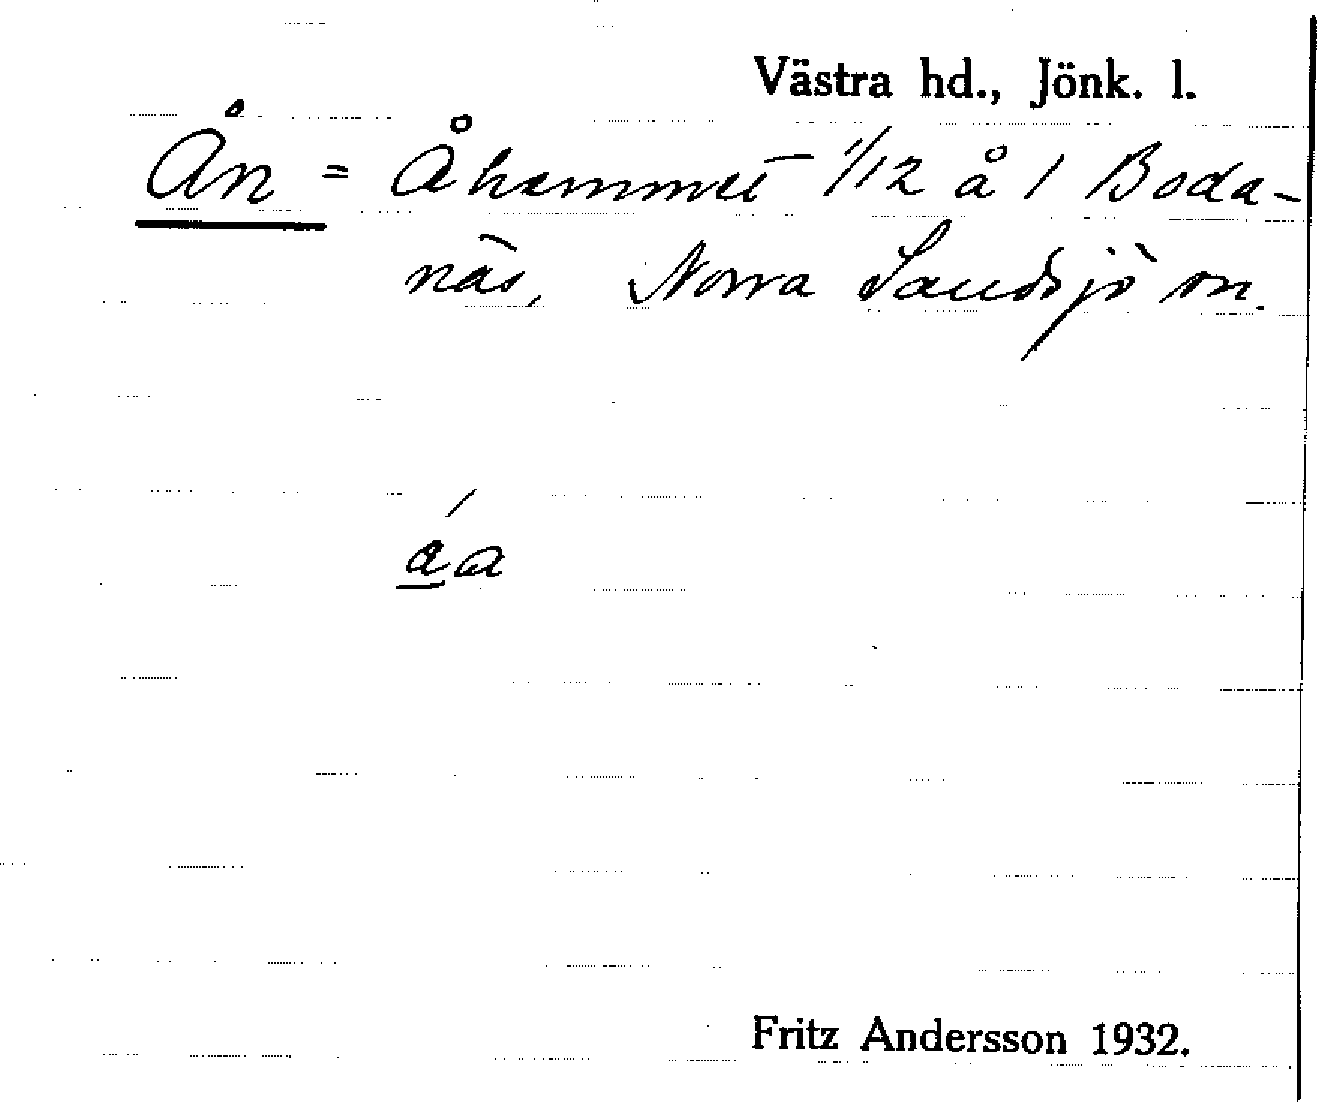 Västra hd., Jönk. l.
Ån = Åhammet 1/12 å 1 Boda-
näs, Norra Sandsjö sn.
áa
Fritz Andersson 1932.